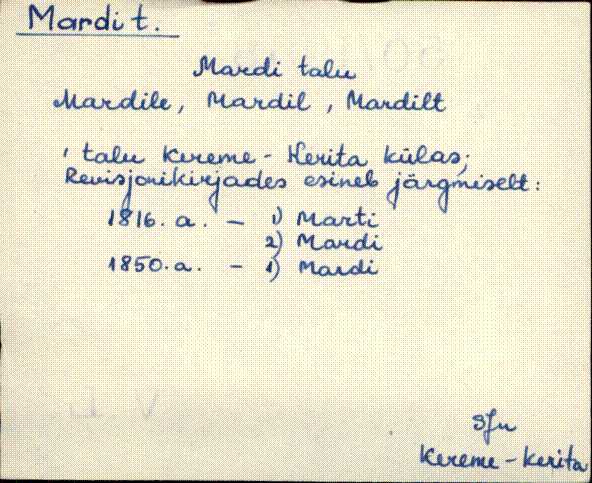 Mardi t.
Mardi talu
Mardile, Mardil, Mardilt
' talu Kereme - Kerita külas;
Revisjonikirjades esineb järgmiselt:
1816. a. - 1) Marti
2) Mardi
1850. a. - 1) Mardi
Kereme - Kerita